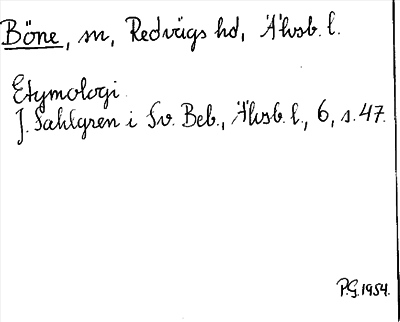 Böne, sn, Redvägs hd, Älvsb. l.
Etymologi
J. Sahlgren i Sv. Beb., Älvsb. l., 6, s. 47.
P.G. 1954.